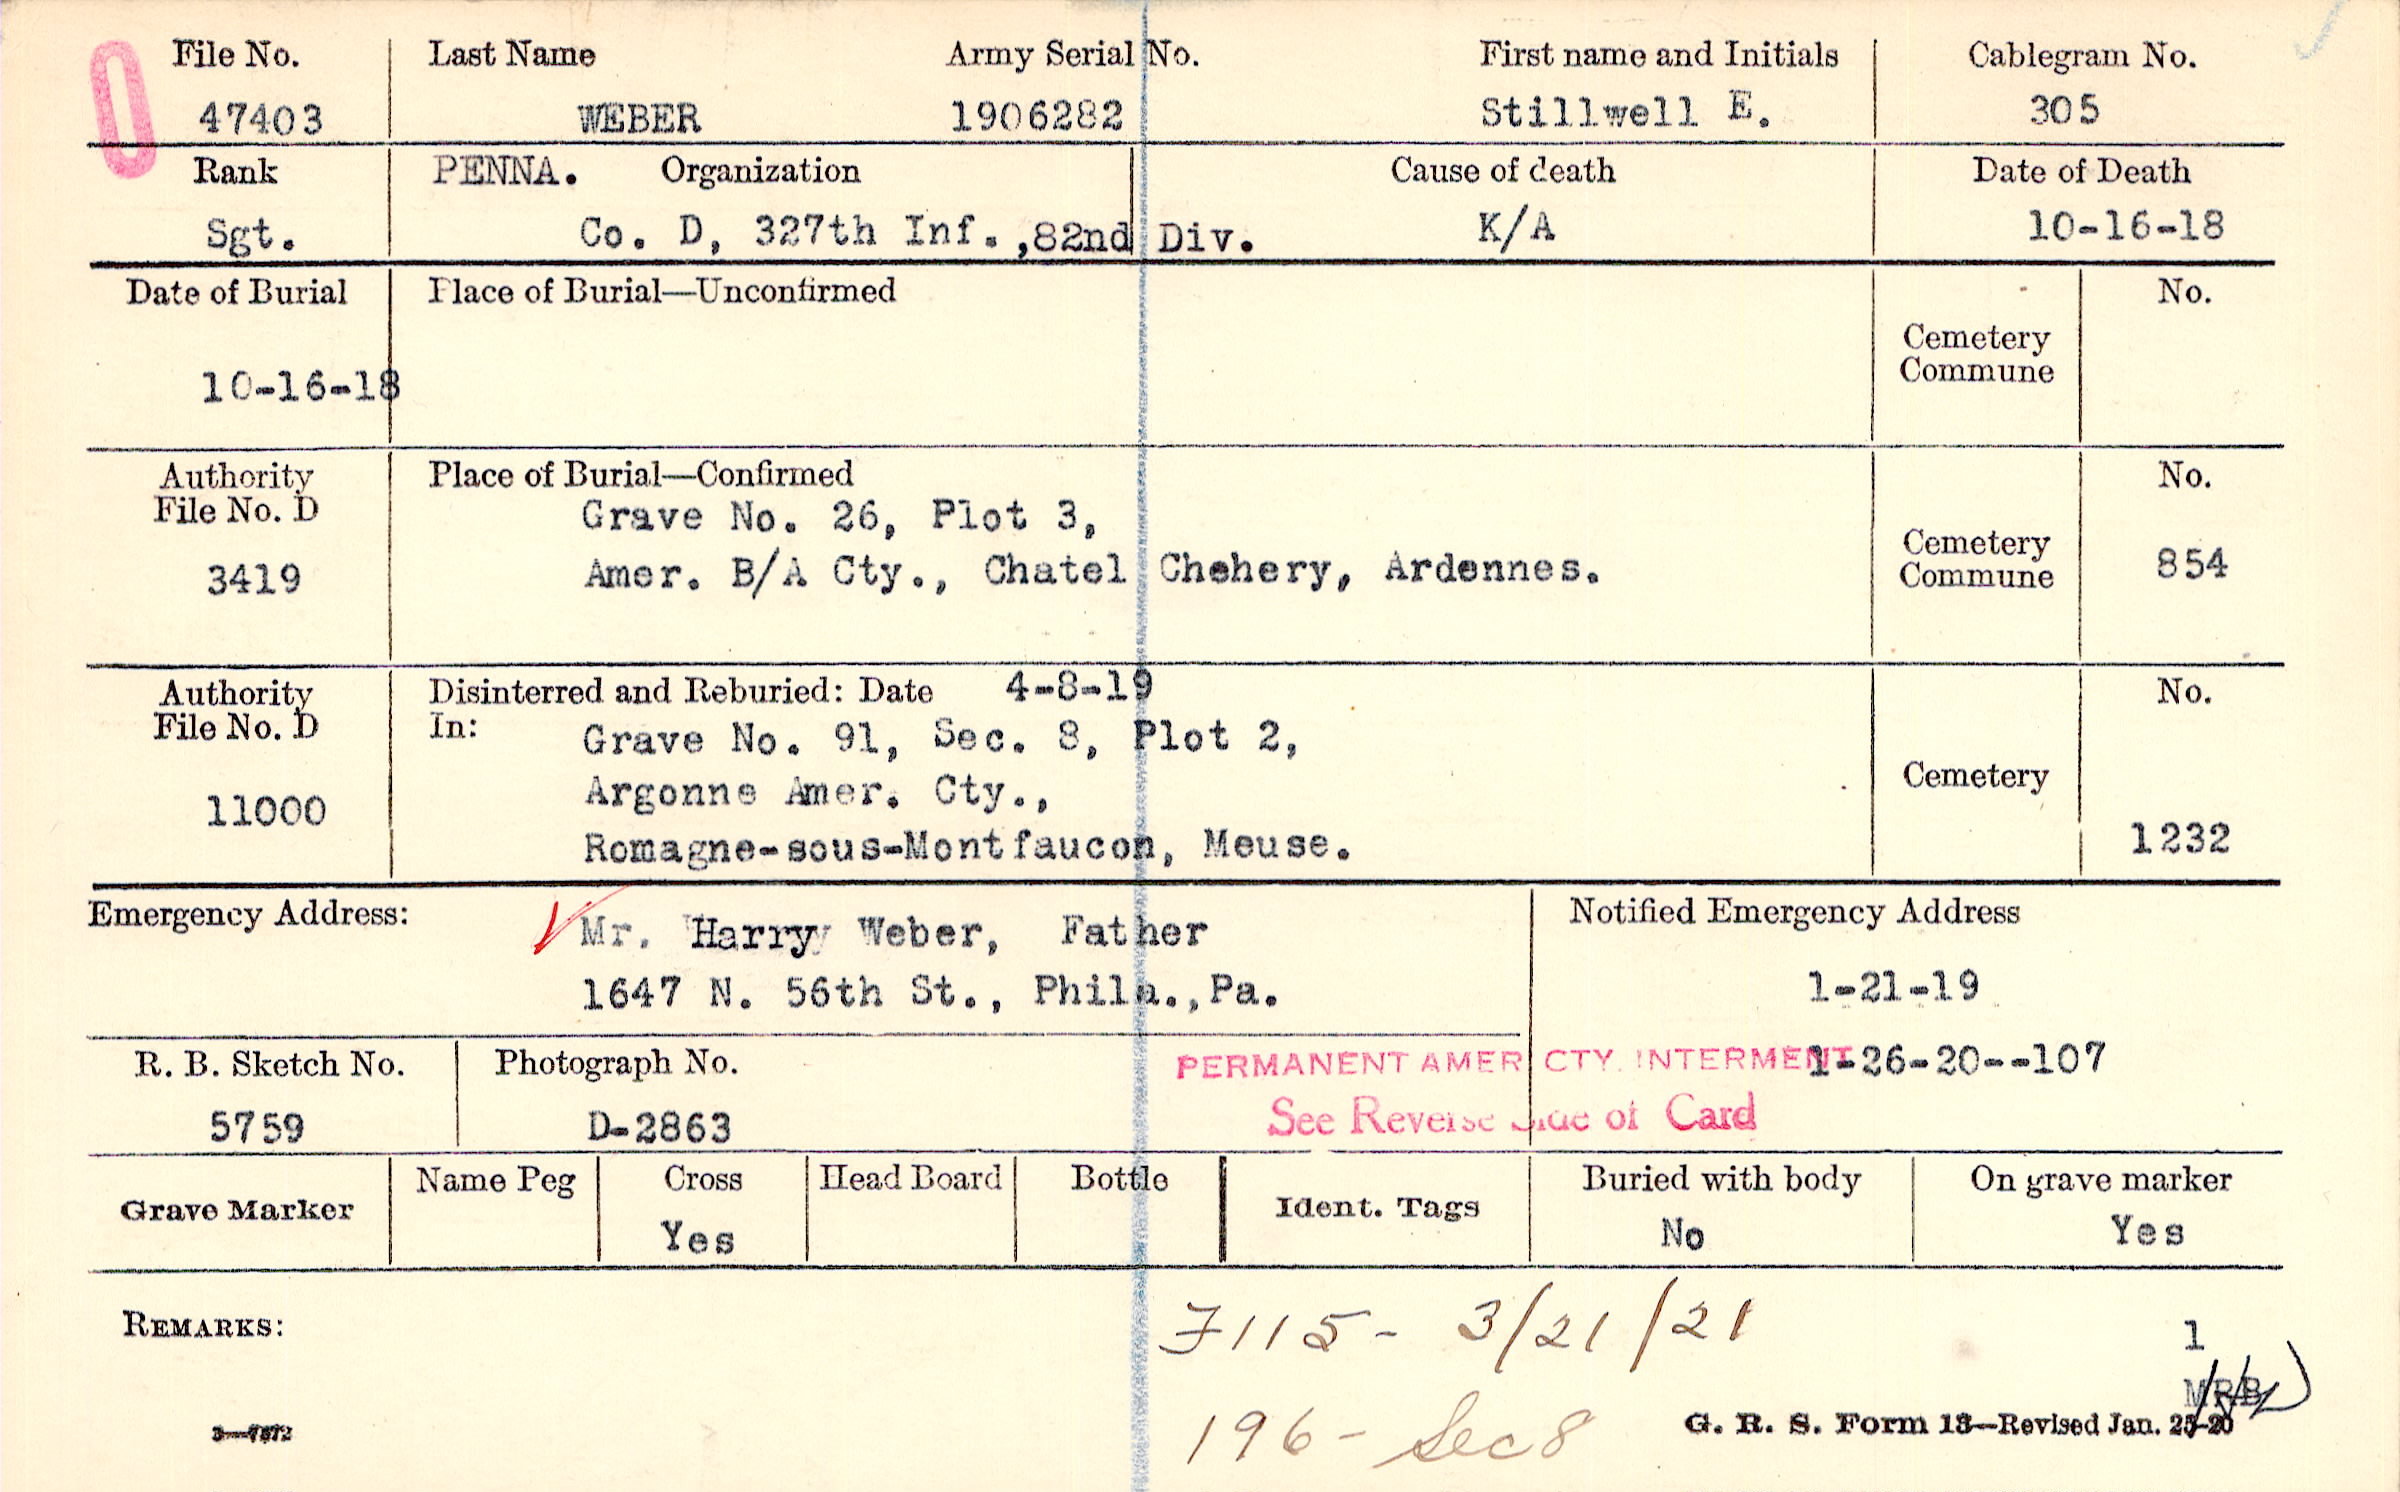 File No. Last Name Army Serial No. First name and Initials Cablegram No.
47403 WEBER 1906282 Stillwell E. 305
Rank PENNA. Organization Cause of death Date of Death
Sgt. Co. D, 327th Inf.,82nd Div. K/A 10-16-18
Date of Burial Place of Burial—Unconfirmed No.
Cemetery
Commune
10-16-18
Authority Place of Burial—Confirmed No.
File No. D Grave No. 26, Plot 3,
Cemetery
3419 Amer. B/A Cty., Chatel Chehery, Ardennes. Commune 854
Authority Disinterred and Reburied: Date 4-8-19 No.
File No. D In: Grave No. 91, Sec. 8, Plot 2,
Argonne Amer. Cty., Cemetery
11000
Romagne-sous-Montfaucon, Meuse. 1232
Emergency Address: Mr. Harry Weber, Father Notified Emergency Address
1647 N. 56th St., Phila.,Pa. 1-21-19
R. B. Sketch No. Photograph No. PERMANENT AMER CTY. INTERMENT 1-26-20--107
5759 D-2863 See Reverse Side of Card
Grave Marker Name Peg Cross Head Board Bottle Ident. Tags Buried with body On grave marker
Yes No Yes
REMARKS: 7115 - 3/21/21
1
MRB
196 - Sec 8
3—7872 G. R. S. Form 13—Revised Jan. 25-20